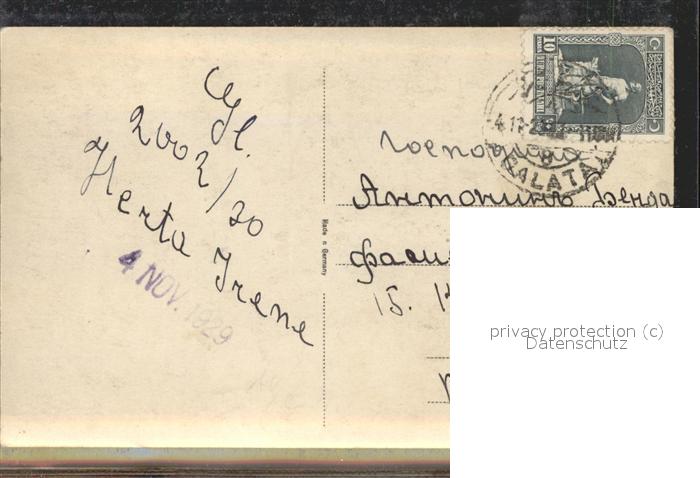 Gl.
2002/30
Herta Irene
4 NOV. 1929
Made n Germany
10
GALATA
Антонинъ Бенда
фаси
15.
privacy protection (c)
Datenschutz